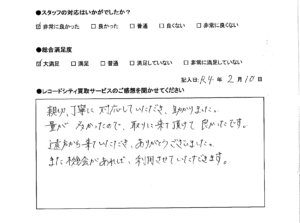 ●スタッフの対応はいかがでしたか？
☑非常に良かった □良かった □普通 □良くない □非常に良くない
●総合満足度
☑大満足 □満足 □普通 □満足していない □非常に満足していない
記入日：R4年2月10日
●レコードシティ買取サービスのご感想を聞かせてください
親切、丁寧に対応していただき、助かりました。
量が多かったので、取りに来て頂けて良かったです。
遠方から来ていただき、ありがとうございました。
また機会があれば、利用させていただきます。